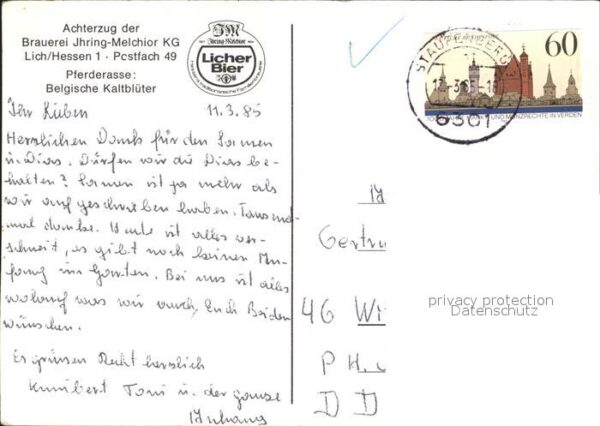 Achterzug der
Brauerei Jhring-Melchior KG
Lich/Hessen 1 · Postfach 49
Pferderasse:
Belgische Kaltblüter
JM
Jhring-Melchior
Licher
Bier
Ihr Lieben
11.3.85
Herzlichen Dank für den Samen
u. Dias. Dürfen wir die Dias be-
halten? Samen ist ja mehr als
wir aufgeschrieben haben. Tausend-
mal danke. Heute ist alles ver-
schneit, es gibt noch keinen An-
fang im Garten. Bei uns ist alles
wohlauf was wir auch Euch Beiden
wünschen.
Es grüssen Recht herzlich
Kunibert Toni u. der ganze
Anhang
STAUFENBERG
6301
60
MÜNZRECHTE IN VERDEN
Gertru
46 Wi
P H.
D D
privacy protection
Datenschutz